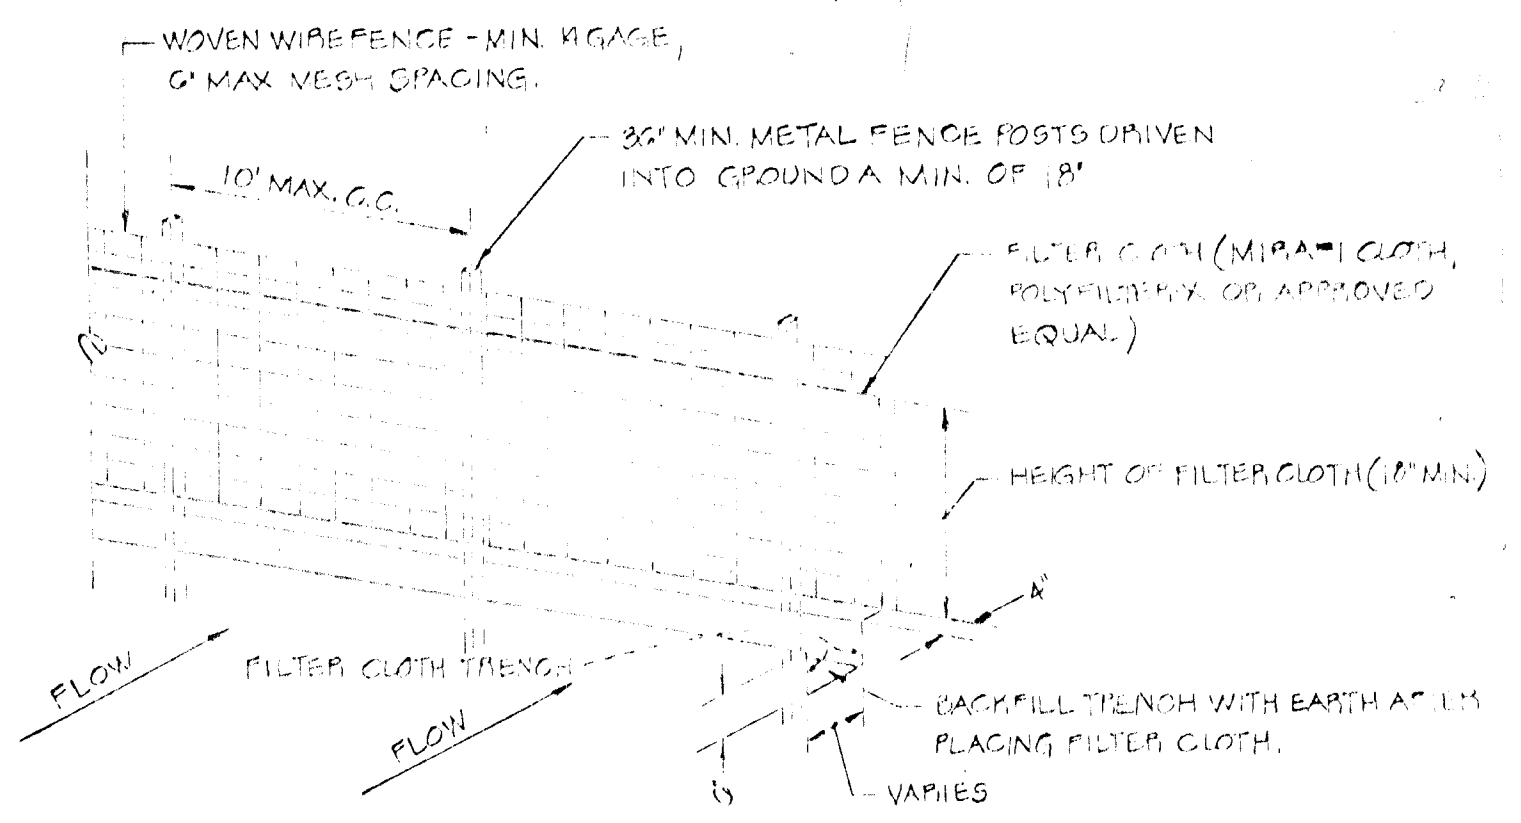 WOVEN WIRE FENCE - MIN. 14 GAGE,
6" MAX MESH SPACING.
36" MIN. METAL FENCE POSTS DRIVEN
INTO GROUND A MIN. OF 18"
10' MAX. O.C.
FILTER CLOTH (MIRAFI CLOTH,
POLYFILTER X OR APPROVED
EQUAL)
HEIGHT OF FILTER CLOTH (18" MIN.)
4"
FLOW
FILTER CLOTH TRENCH
FLOW
BACKFILL TRENCH WITH EARTH AFTER
PLACING FILTER CLOTH.
VARIES